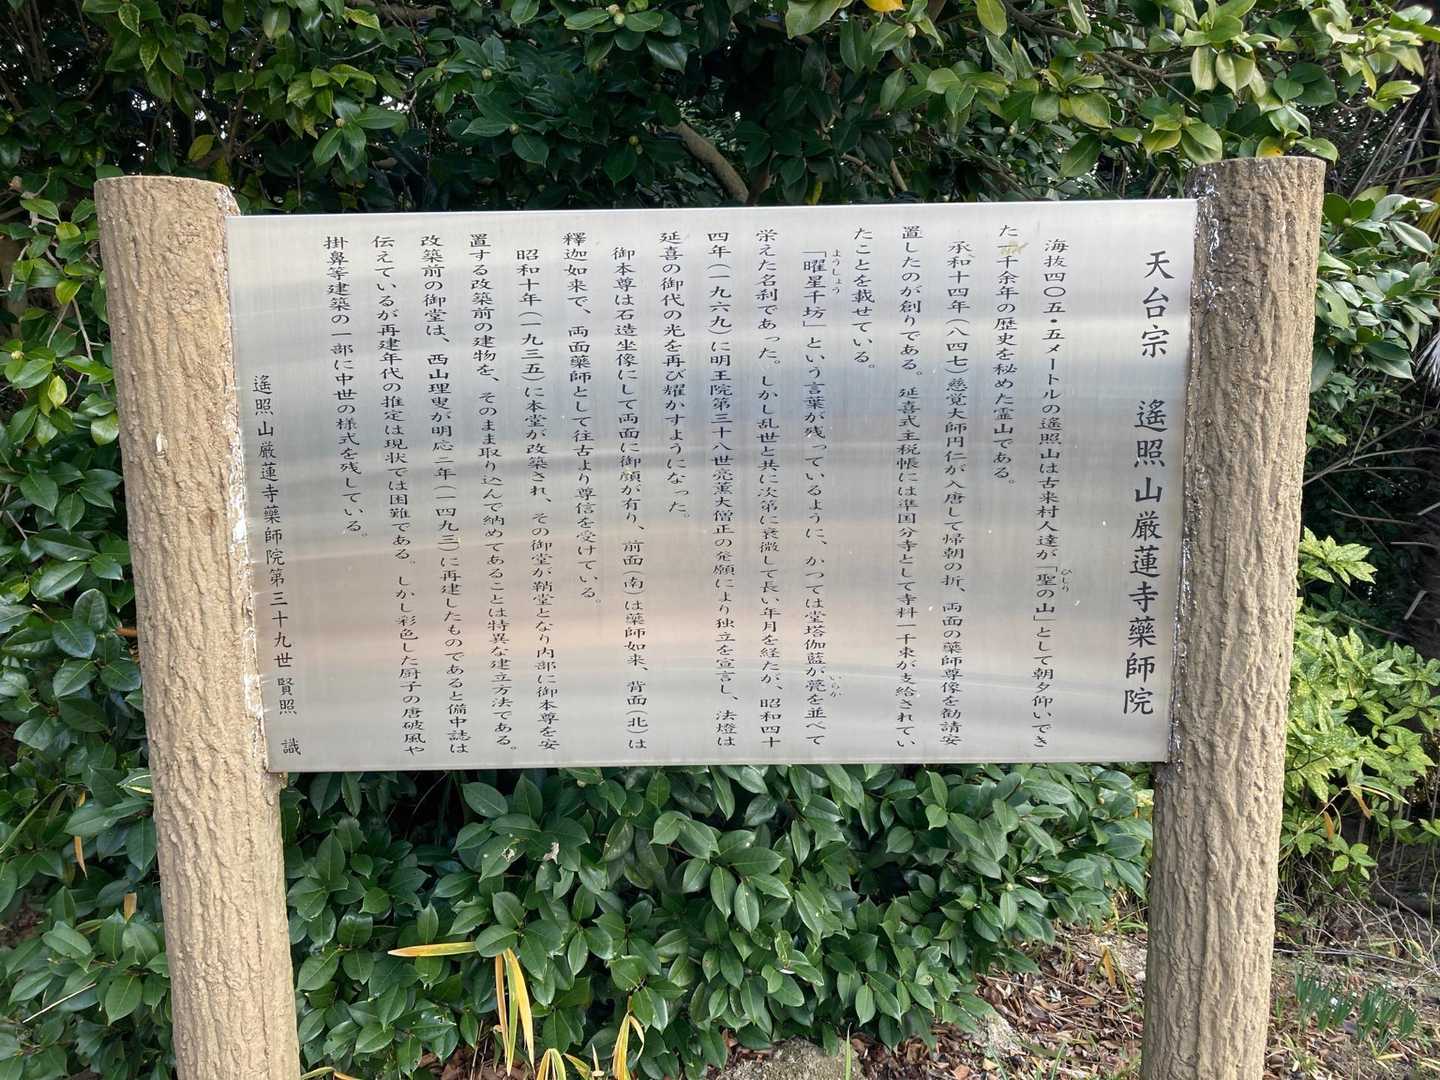 天台宗　遙照山厳蓮寺藥師院
海抜四〇五・五メートルの遙照山は古来村人達が「聖の山」として朝夕仰いでき
ひじり
た一千余年の歴史を秘めた霊山である。
承和十四年(八四七)慈覚大師円仁が入唐して帰朝の折、両面の藥師尊像を勧請安
置したのが創りである。延喜式主税帳には準国分寺として寺料一千束が支給されてい
たことを載せている。
「曜星千坊」という言葉が残っているように、かつては堂塔伽藍が甍を並べて
ようしょう
いらか
栄えた名刹であった。しかし乱世と共に次第に衰微して長い年月を経たが、昭和四十
四年(一九六九)に明王院第三十八世亮薫大僧正の発願により独立を宣言し、法燈は
延喜の御代の光を再び耀かすようになった。
御本尊は石造坐像にして両面に御顔が有り、前面(南)は藥師如来、背面(北)は
釋迦如来で、両面藥師として往古より尊信を受けている。
昭和十年(一九三五)に本堂が改築され、その御堂が鞘堂となり内部に御本尊を安
置する改築前の建物を、そのまま取り込んで納めてあることは特異な建立方法である。
改築前の御堂は、西山理叟が明応二年(一四九三)に再建したものであると備中誌は
伝えているが再建年代の推定は現状では困難である。しかし彩色した厨子の唐破風や
掛鼻等建築の一部に中世の様式を残している。
遙照山厳蓮寺藥師院第三十九世　賢照　識